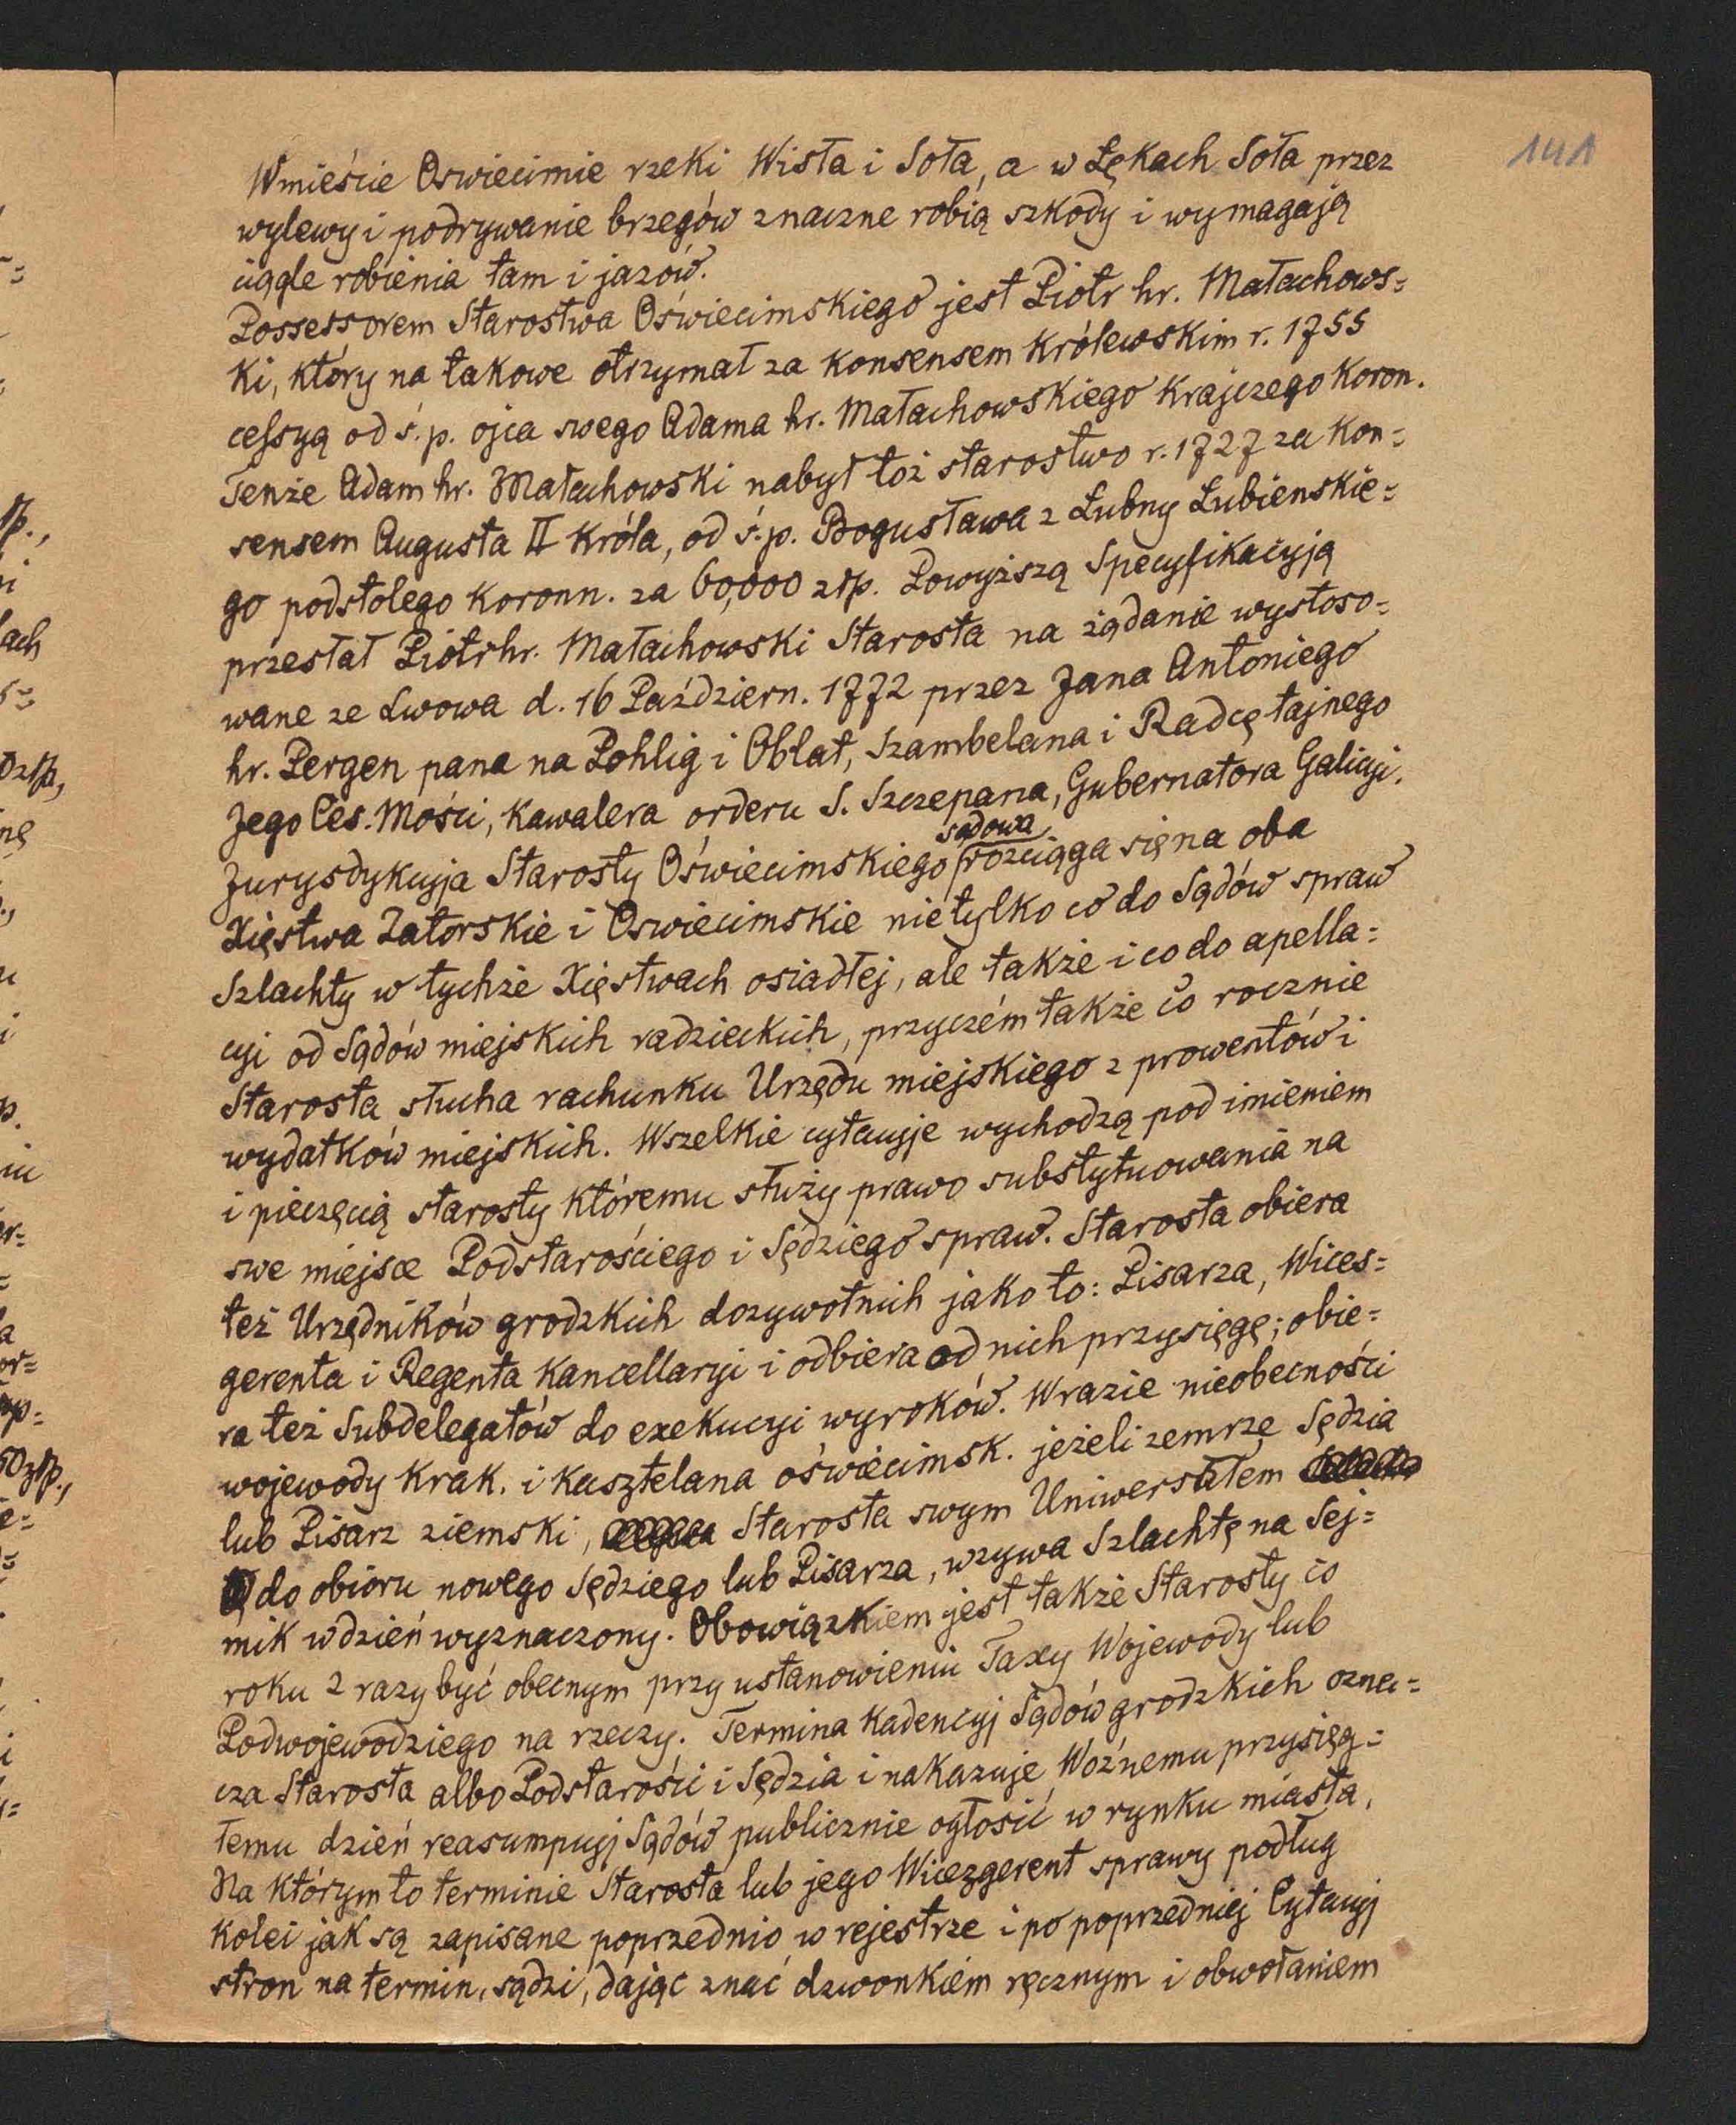 141
W mieście Oswiecimie rzeki Wisła i Soła, a w Łękach Soła przez
wylewy i podrywanie brzegów znaczne robią szkody i wymagają
ciągle robienia tam i jazów.
Possessorem Starostwa Oświecimskiego jest Piotr hr. Małachows=
ki, który na takowe otrzymał za konsensem Królewskim r. 1755
cessyą od ś.p. ojca swego Adama hr. Małachowskiego Krajczego Koron.
Tenże Adam hr. Małachowski nabył toż starostwo r. 1727 za kon=
sensem Augusta II Króla, od ś.p. Bogusława z Łubny Łubienskie=
go podstolego Koronn. za 60,000 złp. Powyższą Specyfikacyją
przesłał Piotr hr. Małachowski Starosta na żądanie wystoso=
wane ze Lwowa d. 16 Październ. 1772 przez Jana Antoniego
hr. Pergen pana na Pohlig i Oblat, Szambelana i Radcę tajnego
Jego Ces. Mości, Kawalera orderu S. Szczepana, Gubernatora Galicyi.
sądowa
Jurysdykcyja Starosty Oświecimskiego rozciąga się na oba
Xięstwa Zatorskie i Oswiecimskie nietylko co do Sądów spraw
Szlachty w tychże Xięstwach osiadłej, ale także i co do apella=
cyi od Sądów miejskich radzieckich, przyczém także co rocznie
Starosta słucha rachunku Urzędu miejskiego z prowentów i
wydatków miejskich. Wszelkie cytacyje wychodzą pod imieniem
i pieczęcią starosty któremu służy prawo substytuowania na
swe miejsce Podstarościego i Sędziego spraw. Starosta obiera
też Urzędników grodzkich dozywotnich jako to: Pisarza, Wices=
gerenta i Regenta Kancellaryi i odbiera od nich przysięgę; obie=
ra też Subdelegatów do exekucyi wyroków. W razie nieobecności
wojewody Krak. i Kasztelana oświecimsk. jeżeli zemrze Sędzia
lub Pisarz ziemski, Starosta swym Uniwersałem
do obioru nowego Sędziego lub Pisarza, wzywa Szlachtę na Sej=
mik w dzień wyznaczony. Obowiązkiem jest także Starosty co
roku 2 razy być obecnym przy ustanowieniu Taxy Wojewody lub
Podwojewodziego na rzeczy. Termina Kadencyj Sądów grodzkich ozna=
cza Starosta albo Podstarości i Sędzia i nakazuje Woźnemu przysięg=
łemu dzień reasumpcyj Sądów publicznie ogłosić w rynku miasta.
Na którym to terminie Starosta lub jego Wicezgerent sprawy podług
Kolei jak są zapisane poprzednio w rejestrze i po poprzedniej Cytacyj
stron na termin, sądzi, dając znać dzwonkiem ręcznym i obwołaniem